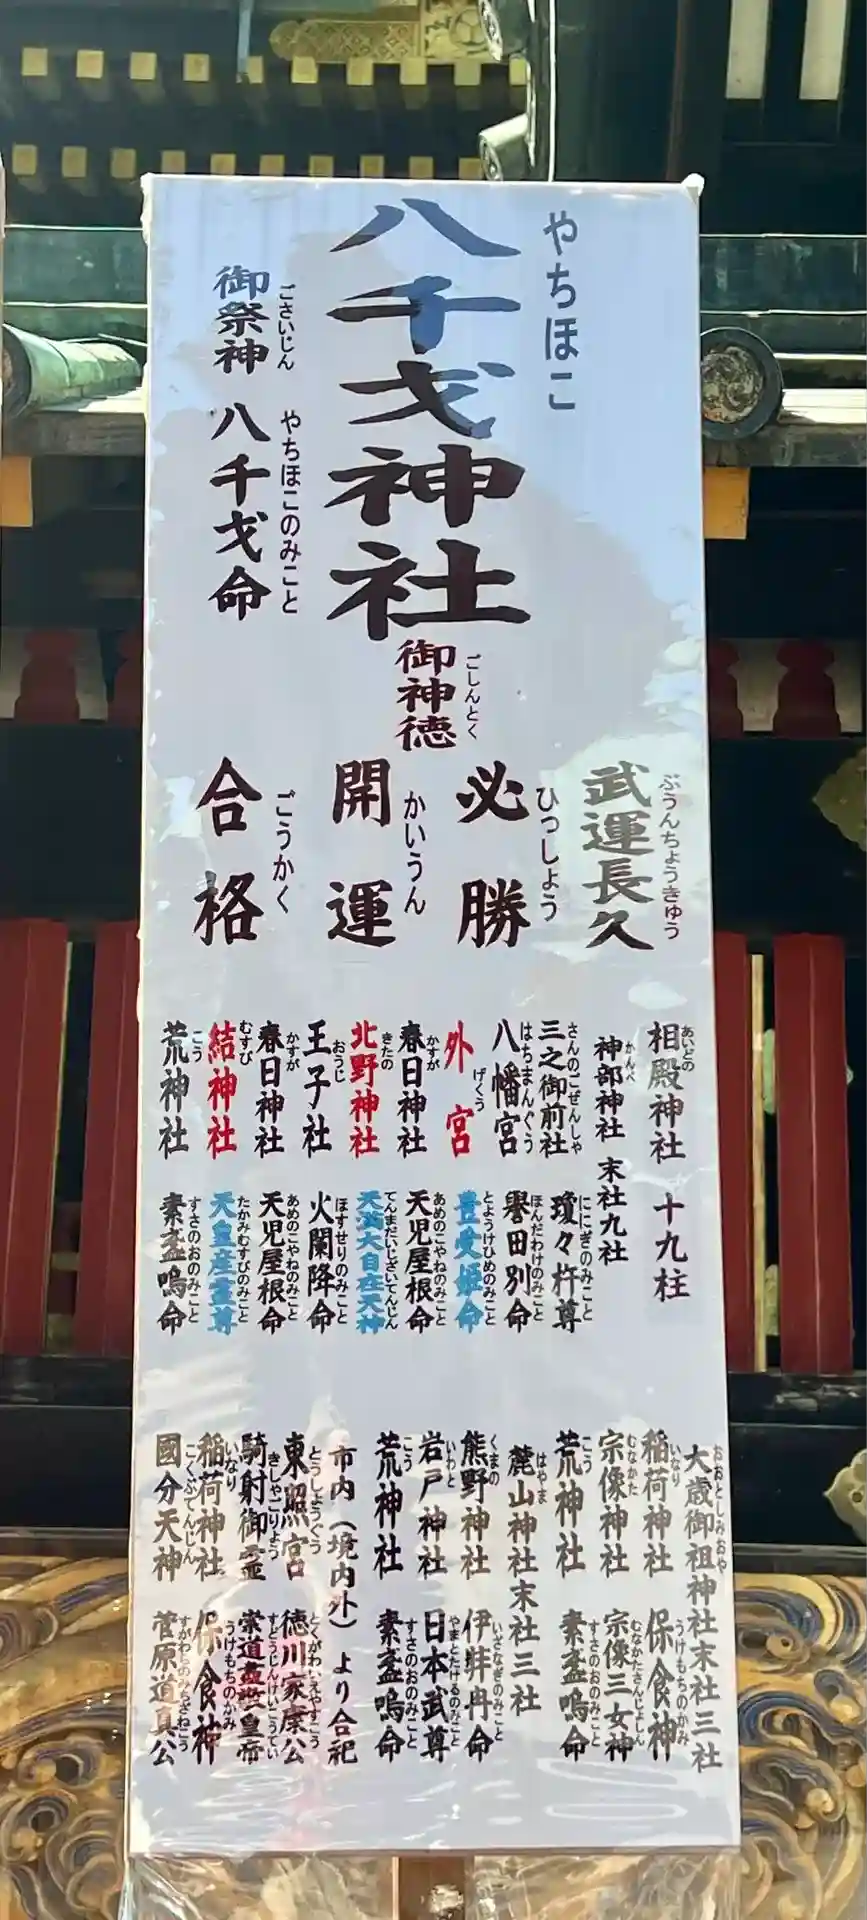 やちほこ
八千戈神社
ごさいじん
御祭神
やちほこのみこと
八千戈命
ごしんとく
御神徳
ぶうんちょうきゅう
武運長久
ひっしょう
必勝
かいうん
開運
ごうかく
合格
あいどの
相殿神社 十九柱
かんべ
神部神社 末社九社
さんのごぜんしゃ
三之御前社
ににぎのみこと
瓊々杵尊
はちまんぐう
八幡宮
ほんだわけのみこと
譽田別命
げくう
外宮
とようけひめのみこと
豊受姫命
かすが
春日神社
あめのこやねのみこと
天児屋根命
きたの
北野神社
てんまだいじざいてんじん
天満大自在天神
おうじ
王子社
ほすせりのみこと
火闌降命
かすが
春日神社
あめのこやねのみこと
天児屋根命
むすび
結神社
たかみむすびのみこと
天皇産霊尊
こう
荒神社
すさのおのみこと
素盞嗚命
おおとしみおや
大歳御祖神社末社三社
いなり
稲荷神社
うけもちのかみ
保食神
むなかた
宗像神社
むなかたさんじょしん
宗像三女神
こう
荒神社
すさのおのみこと
素盞嗚命
はやま
麓山神社末社三社
くまの
熊野神社
いざなぎのみこと
伊弉冉命
いわと
岩戸神社
やまとたけるのみこと
日本武尊
こう
荒神社
すさのおのみこと
素盞嗚命
市内（境内外）より合祀
とうしょうぐう
東照宮
とくがわいえやすこう
徳川家康公
きしゃごりょう
騎射御霊
すどうじんけいこうてい
崇道盡敬皇帝
いなり
稲荷神社
うけもちのかみ
保食神
こくぶてんじん
國分天神
すがわらのみちざねこう
菅原道真公